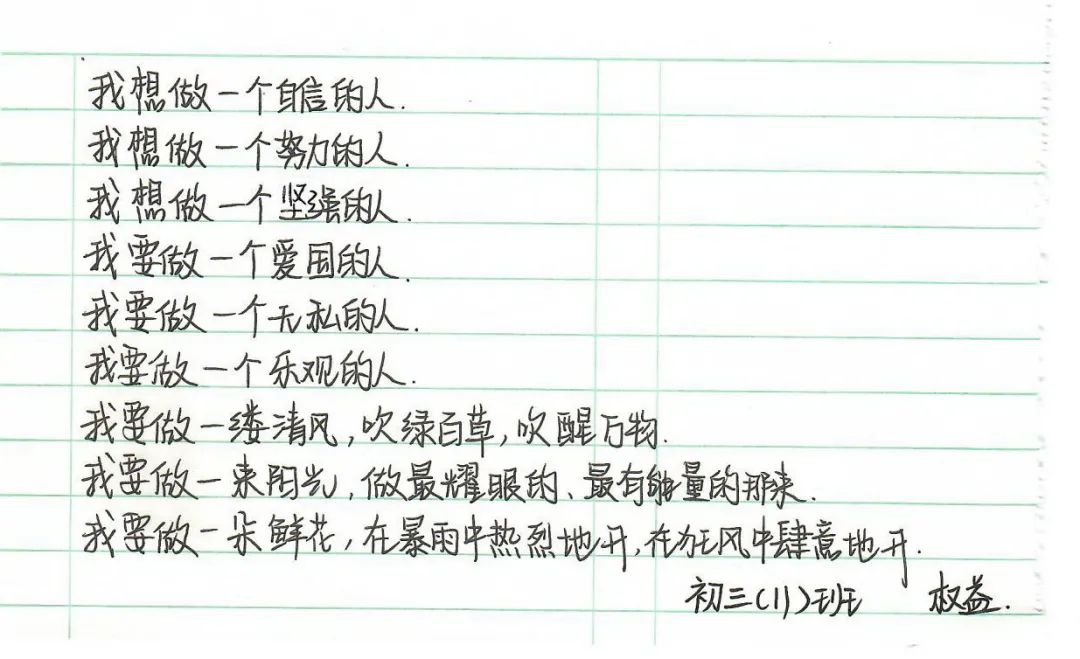 我想做一个自信的人.
我想做一个努力的人.
我想做一个坚强的人.
我要做一个爱国的人.
我要做一个无私的人.
我要做一个乐观的人.
我要做一缕清风,吹绿百草,吹醒万物.
我要做一束阳光,做最耀眼的、最有能量的那束.
我要做一朵鲜花,在暴雨中热烈地开,在狂风中肆意地开.
初三(11)班 权益.